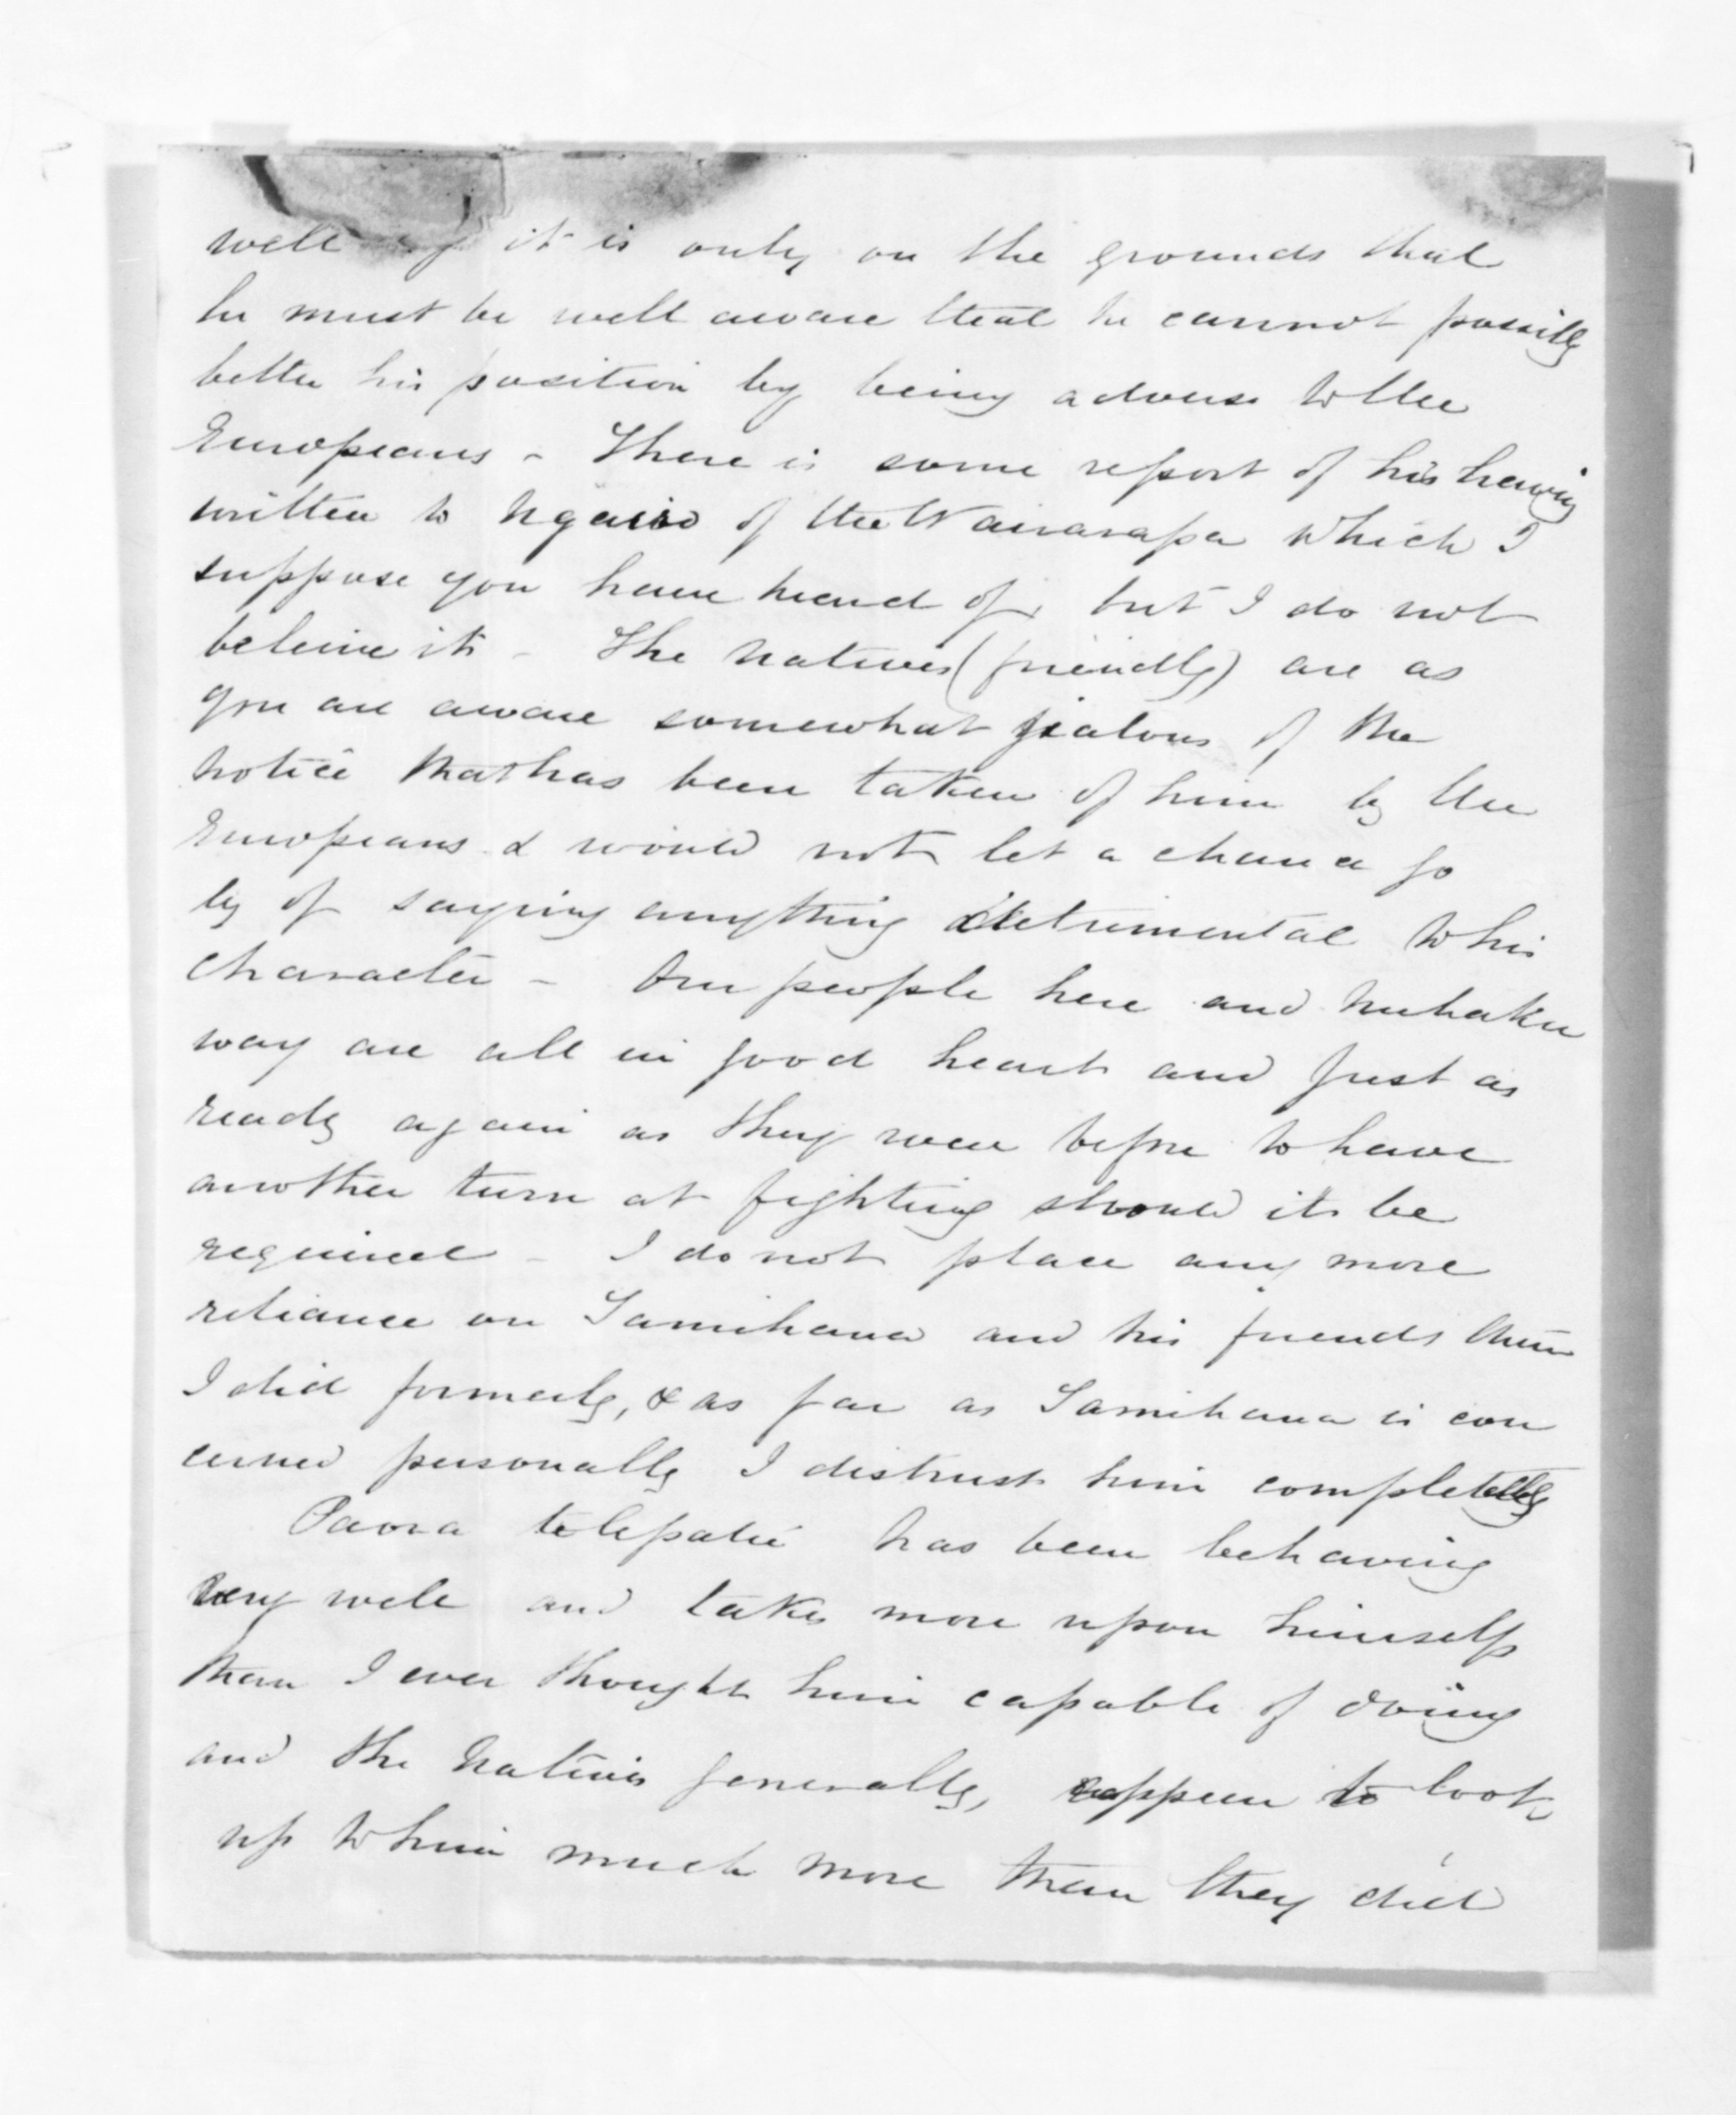 well if it is only on the grounds that
he must be well aware that he cannot possibly
better his position by being adverse to the
Europeans - There is some report of his having
written to Ngairo of the Wairarapa which I
suppose you have heard of, but I do not
beleive it - The Natives (friendly) are as
you are aware somewhat jealous of the
notice that has been taken of him by the
Europeans & would not let a chance go
by of saying anything detrimental to his
character - Our people here and Nuhaka
way are all in good heart and just as
ready again as they were before to have
another turn at fighting should it be
required - I do not place any more
reliance on Tamihana and his friends than
I did formerly, & as far as Tamihana is con
cerned personally I distrust him completely
Paora te Apatu has been behaving
very well and takes more upon himself
than I ever thought him capable of doing
and the Natives generally, appear to look
up to him much more than they did